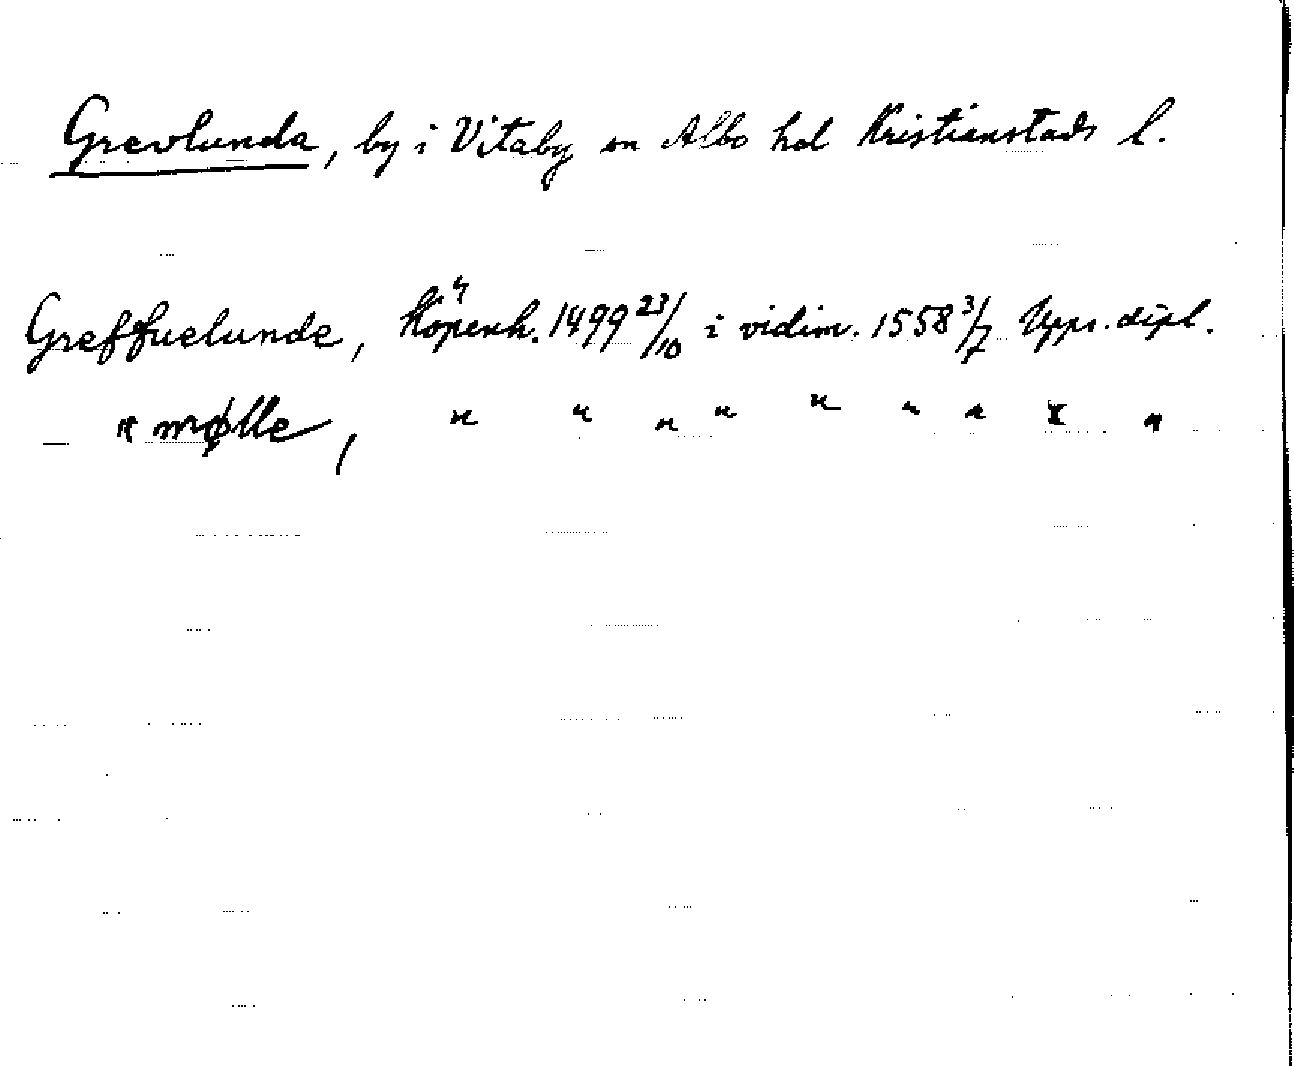 Grevlunda, by i Vitaby sn Albo hd Kristianstads l.
Greffuelunde, Köpenh. 1499 23/10 i vidim. 1558 3/7 Upps. dipl.
" mølle, " " " " " " " " "